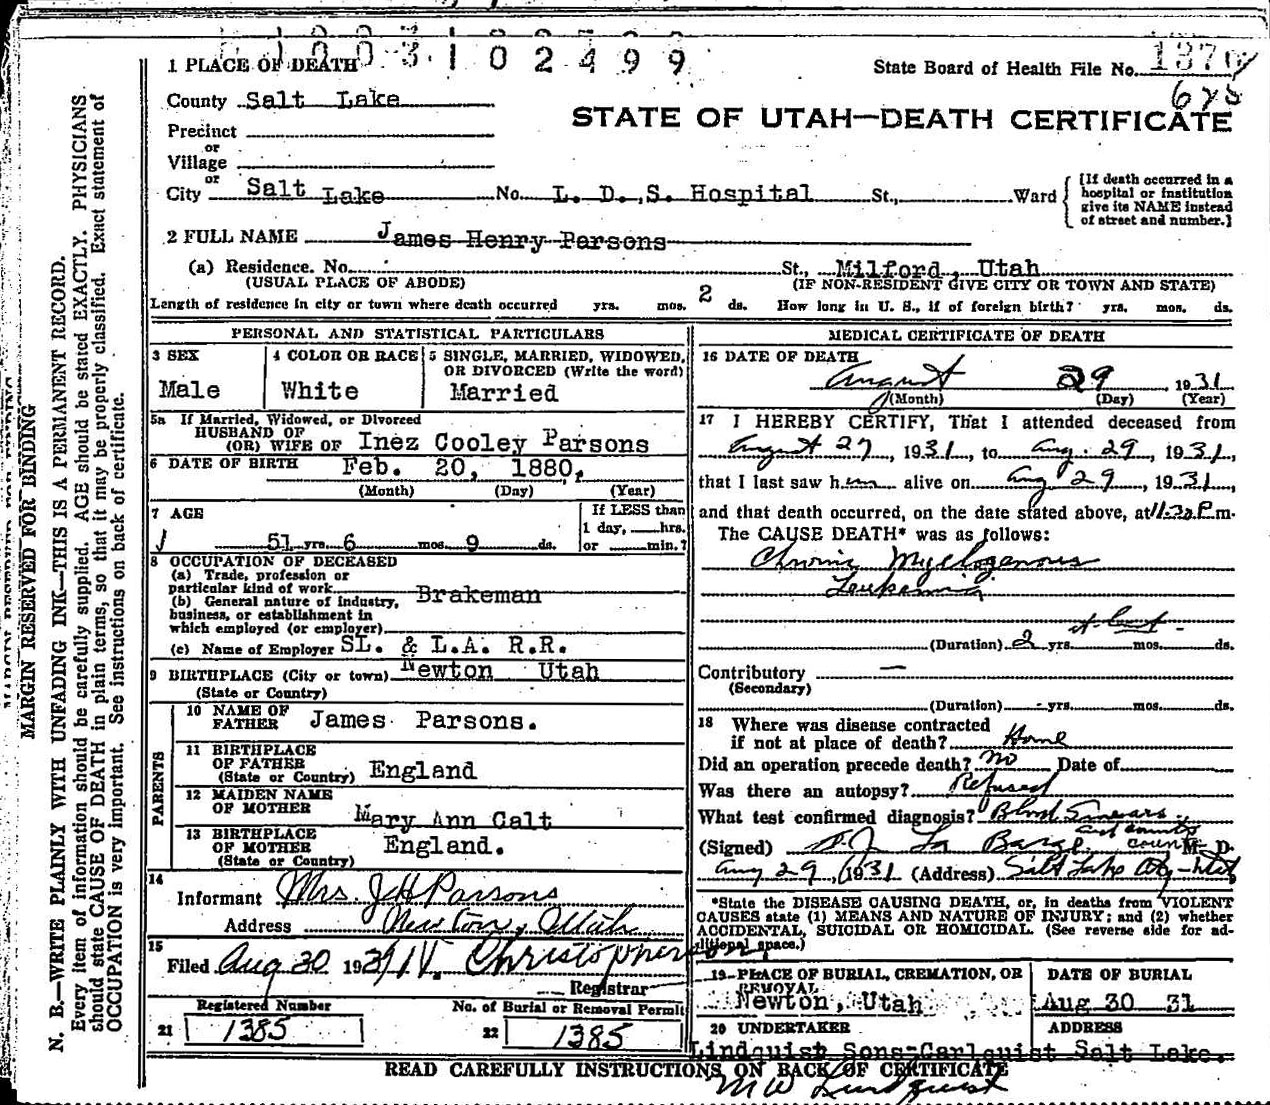 1003102499
1 PLACE OF DEATH
State Board of Health File No. 1376
628
County Salt Lake
STATE OF UTAH—DEATH CERTIFICATE
Precinct
or
Village
or
City Salt Lake No. L. D. S. Hospital St., Ward
[If death occurred in a hospital or institution give its NAME instead of street and number.]
2 FULL NAME James Henry Parsons
(a) Residence. No. St., Milford, Utah
(USUAL PLACE OF ABODE) (IF NON-RESIDENT GIVE CITY OR TOWN AND STATE)
Length of residence in city or town where death occurred yrs. mos. 2 ds. How long in U. S., if of foreign birth? yrs. mos. ds.
PERSONAL AND STATISTICAL PARTICULARS
3 SEX
Male
4 COLOR OR RACE
White
5 SINGLE, MARRIED, WIDOWED,
OR DIVORCED (Write the word)
Married
5a If Married, Widowed, or Divorced
HUSBAND OF
(OR) WIFE OF Inez Cooley Parsons
6 DATE OF BIRTH Feb. 20, 1880,
(Month) (Day) (Year)
7 AGE
51 yrs. 6 mos. 9 ds.
If LESS than
1 day, hrs.
or min.?
8 OCCUPATION OF DECEASED
(a) Trade, profession or
particular kind of work Brakeman
(b) General nature of industry,
business, or establishment in
which employed (or employer)
(c) Name of Employer SL. & L.A. R.R.
9 BIRTHPLACE (City or town) Newton Utah
(State or Country)
PARENTS
10 NAME OF
FATHER James Parsons.
11 BIRTHPLACE
OF FATHER
(State or Country) England
12 MAIDEN NAME
OF MOTHER Mary Ann Galt
13 BIRTHPLACE
OF MOTHER England.
(State or Country)
14
Informant Mrs. J H Parsons
Address Newton, Utah
15
Filed Aug 30 1931 W. Christopherson,
Registrar
Registered Number
21 1385
No. of Burial or Removal Permit
22 1385
MEDICAL CERTIFICATE OF DEATH
16 DATE OF DEATH
August 29, 1931
(Month) (Day) (Year)
17 I HEREBY CERTIFY, That I attended deceased from
August 27, 1931, to Aug. 29, 1931,
that I last saw him alive on Aug 29, 1931,
and that death occurred, on the date stated above, at 11.30 P.m.
The CAUSE DEATH* was as follows:
Chronic Myelogenous
Leukemia
at least
(Duration) 2 yrs. mos. ds.
Contributory —
(Secondary)
(Duration) - yrs. mos. ds.
18 Where was disease contracted
if not at place of death? Home
Did an operation precede death? no Date of
Was there an autopsy? Refused
What test confirmed diagnosis? Blood Smears
and counts
(Signed) La Barge M. D.
Aug 29, 1931 (Address) Salt Lake City-Utah
*State the DISEASE CAUSING DEATH, or, in deaths from VIOLENT
CAUSES state (1) MEANS AND NATURE OF INJURY; and (2) whether
ACCIDENTAL, SUICIDAL OR HOMICIDAL. (See reverse side for ad-
ditional space.)
19 PLACE OF BURIAL, CREMATION, OR
REMOVAL
Newton, Utah
DATE OF BURIAL
Aug 30 31
20 UNDERTAKER ADDRESS
Lindquist Sons-Carlquist Salt Lake.
M W Lindquist
READ CAREFULLY INSTRUCTIONS ON BACK OF CERTIFICATE
MARGIN RESERVED FOR BINDING
N. B.—WRITE PLAINLY WITH UNFADING INK—THIS IS A PERMANENT RECORD.
Every item of information should be carefully supplied. AGE should be stated EXACTLY. PHYSICIANS
should state CAUSE OF DEATH in plain terms, so that it may be properly classified. Exact statement of
OCCUPATION is very important. See instructions on back of certificate.